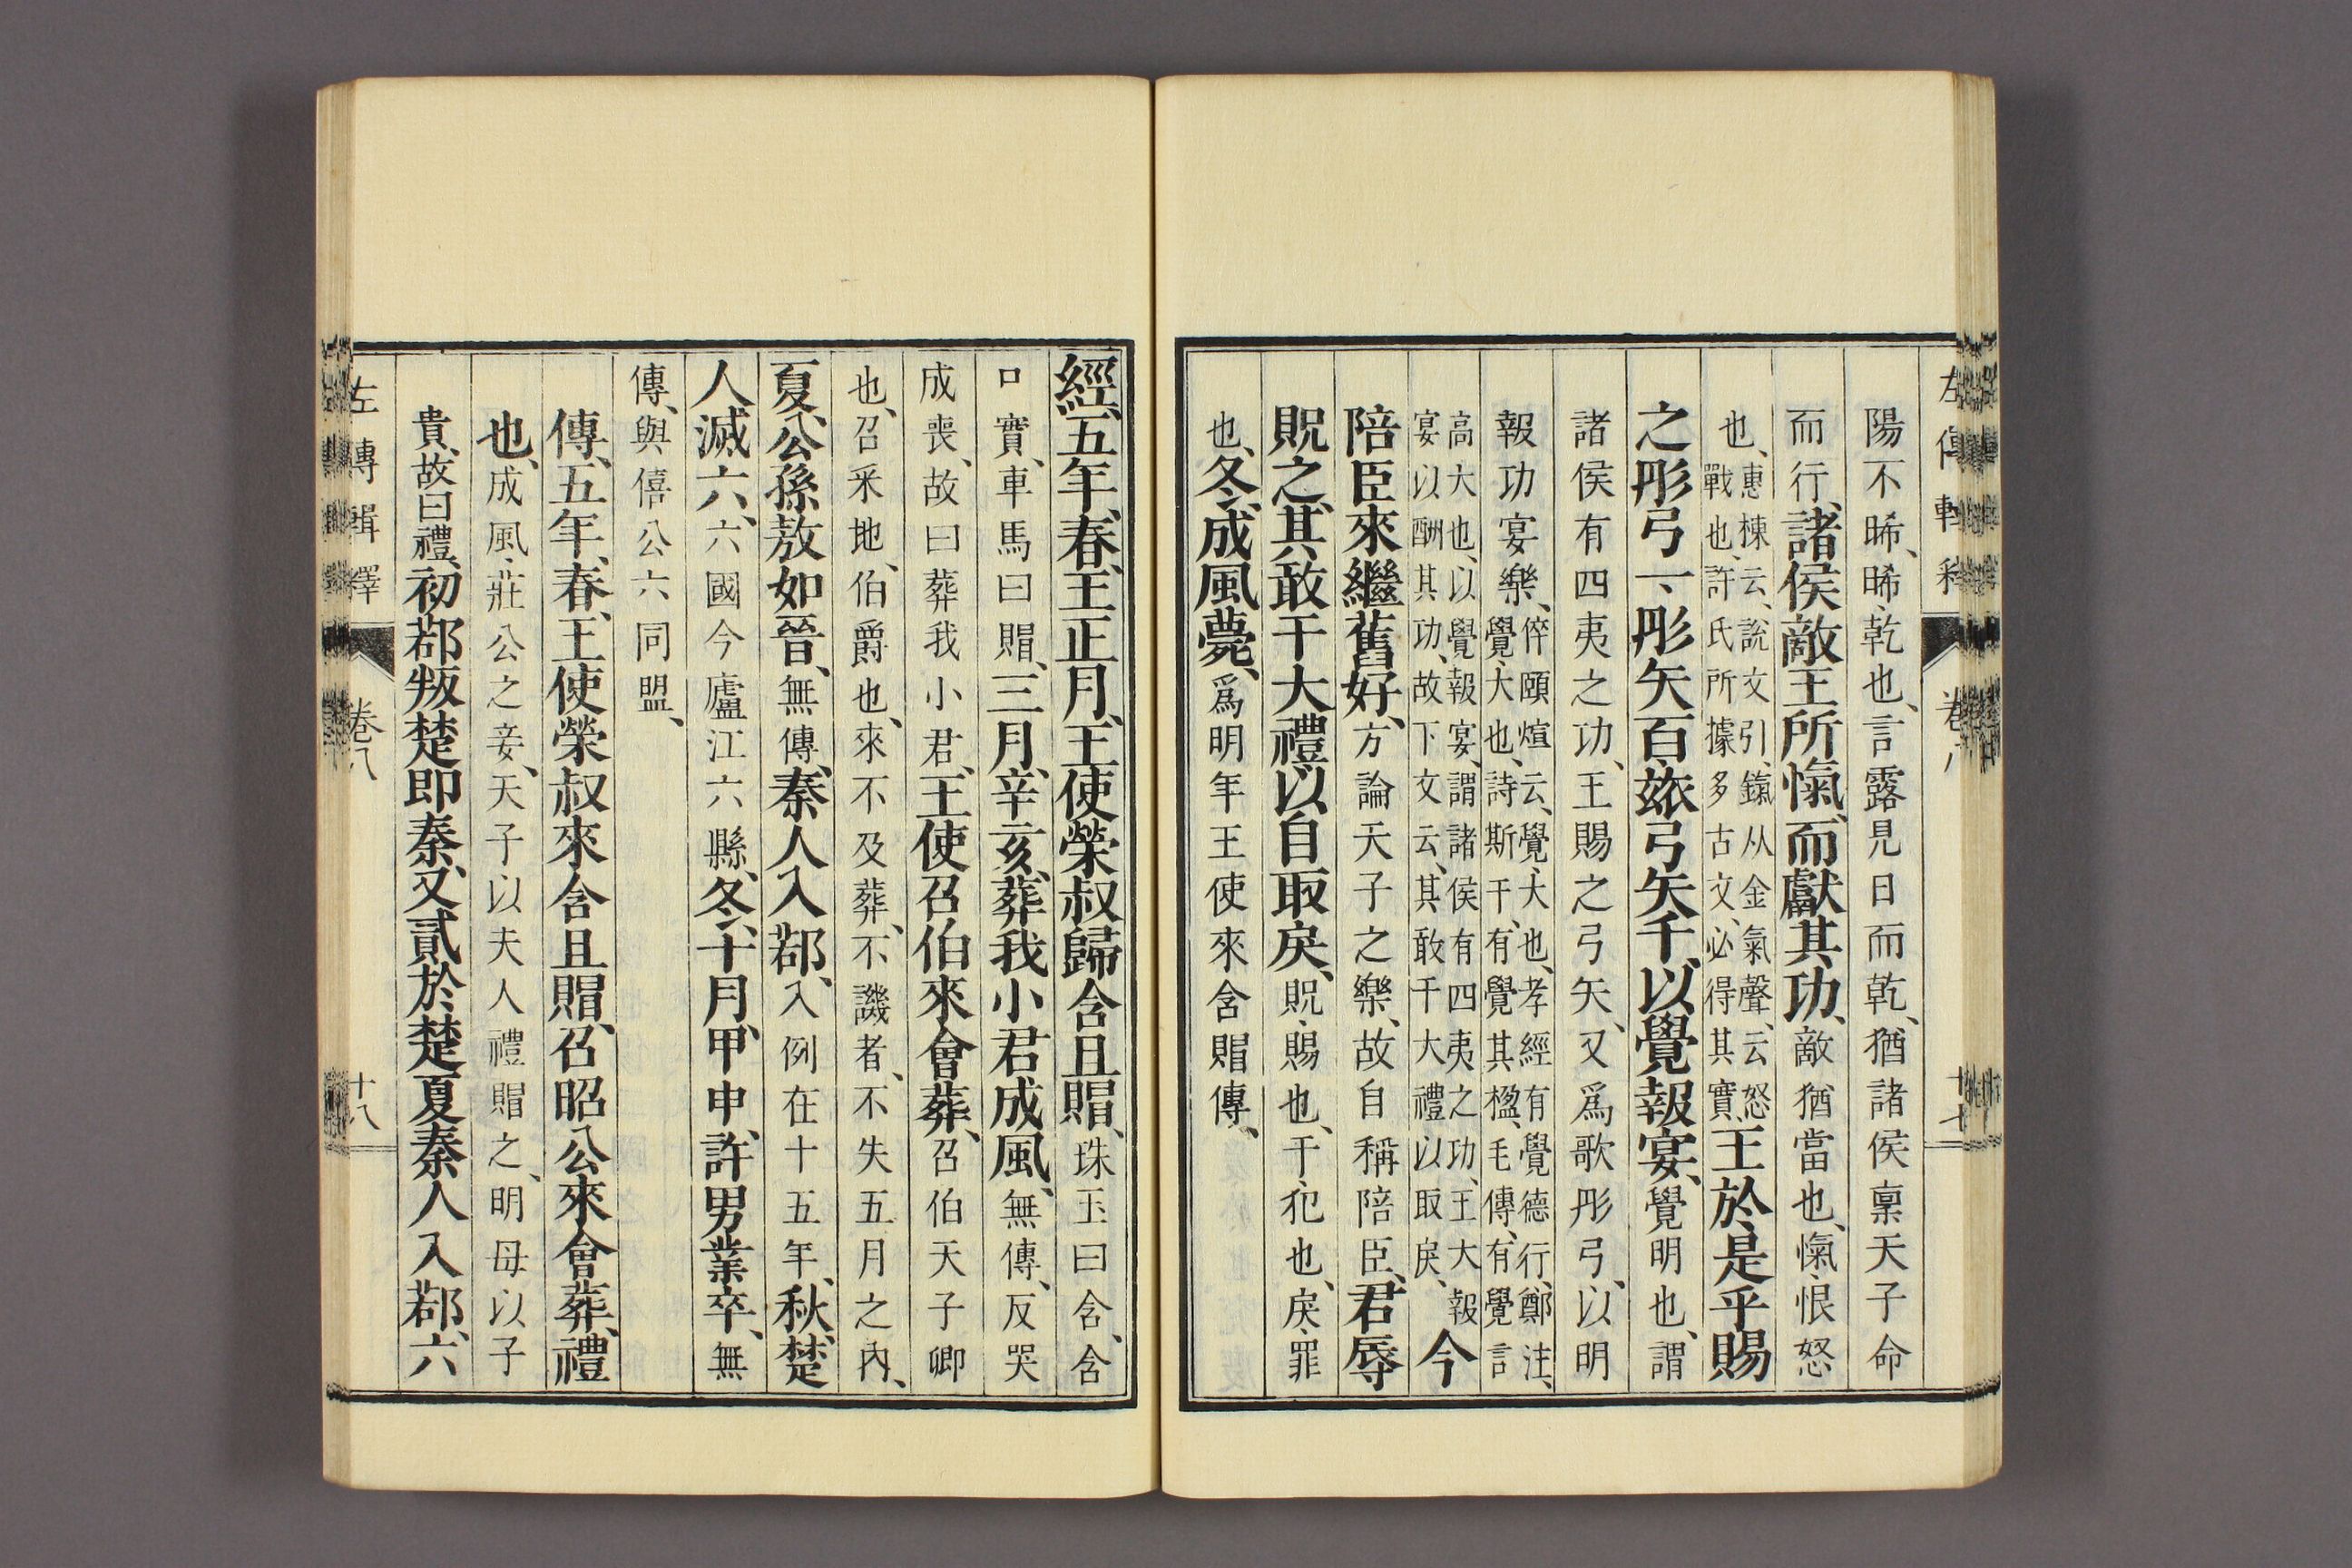 陽不晞、晞、乾也、言露見日而乾、猶諸侯稟天子命
而行、諸侯敵王所愾、而獻其功、敵猶當也、愾、恨怒
也、惠棟云、說文引、鎎、从金氣聲、云怒
戰也、許氏所據多古文、必得其實、王於是乎賜
之彤弓一、彤矢百、玈弓矢千、以覺報宴、覺明也、謂
諸侯有四夷之功、王賜之弓矢、又爲歌彤弓、以明
報功宴樂、倅頤煊云、覺、大也、孝經有覺德行、鄭注、
覺、大也、詩斯干、有覺其楹、毛傳、有覺言
高大也、以覺報宴、謂諸侯有四夷之功、王大報
宴以酬其功、故下文云、其敢干大禮以取戾、今
陪臣來繼舊好、方論天子之樂、故自稱陪臣、君辱
貺之、其敢干大禮、以自取戾、貺、賜也、干、犯也、戾、罪
也、冬、成風薨、爲明年王使來含賵傳、
經、五年、春、王正月、王使榮叔歸含且賵、珠玉曰含、含
口實、車馬曰賵、三月、辛亥、葬我小君成風、無傳、反哭
成喪、故曰葬我小君、王使召伯來會葬、召伯天子卿
也、召采地、伯爵也、來不及葬、不譏者、不失五月之內、
夏、公孫敖如晉、無傳、秦人入鄀、入例在十五年、秋、楚
人滅六、六國今廬江六縣、冬、十月、甲申、許男業卒、無
傳、與僖公六同盟、
傳、五年、春、王使榮叔來含且賵、召昭公來會葬、禮
也、成風、莊公之妾、天子以夫人禮賵之、明母以子
貴、故曰禮、初鄀叛楚即秦、又貳於楚、夏秦人入鄀、六
左傳輯釋 卷八 十八